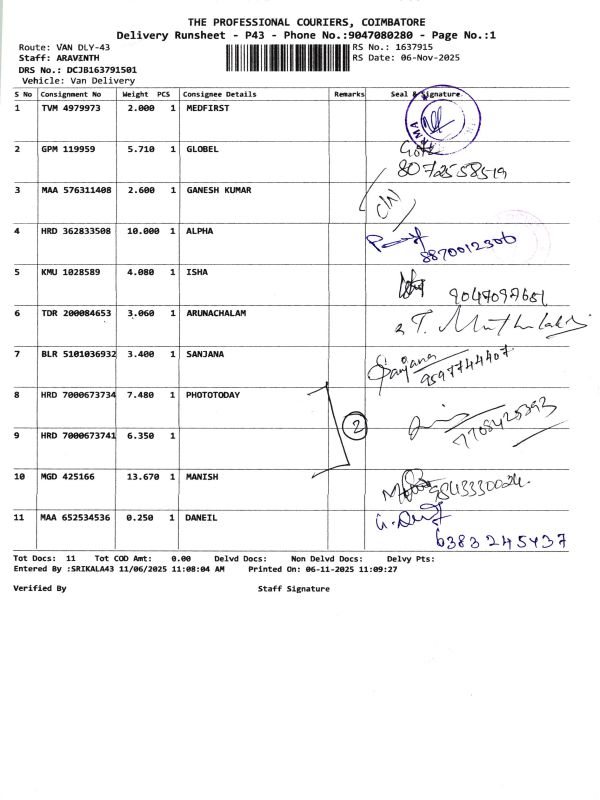 THE PROFESSIONAL COURIERS, COIMBATORE
Delivery Runsheet - P43 - Phone No.:9047080280 - Page No.:1
Route: VAN DLY-43 RS No.: 1637915
Staff: ARAVINTH RS Date: 06-Nov-2025
DRS No.: DCJB163791501
Vehicle: Van Delivery
S No Consignment No Weight PCS Consignee Details Remarks Seal & Signature
1 TVM 4979973 2.000 1 MEDFIRST
2 GPM 119959 5.710 1 GLOBEL
8072558519
3 MAA 576311408 2.600 1 GANESH KUMAR
4 HRD 362833508 10.000 1 ALPHA
8870012306
5 KMU 1028589 4.080 1 ISHA
9047097651
6 TDR 200084653 3.060 1 ARUNACHALAM
7 BLR 5101036932 3.400 1 SANJANA Sanjana
9597744407
8 HRD 7000673734 7.480 1 PHOTOTODAY
2 7708425393
9 HRD 7000673741 6.350 1
10 MGD 425166 13.670 1 MANISH
9843330024
11 MAA 652534536 0.250 1 DANEIL
6383245437
Tot Docs: 11 Tot COD Amt: 0.00 Delvd Docs: Non Delvd Docs: Delvy Pts:
Entered By :SRIKALA43 11/06/2025 11:08:04 AM Printed On: 06-11-2025 11:09:27
Verified By Staff Signature